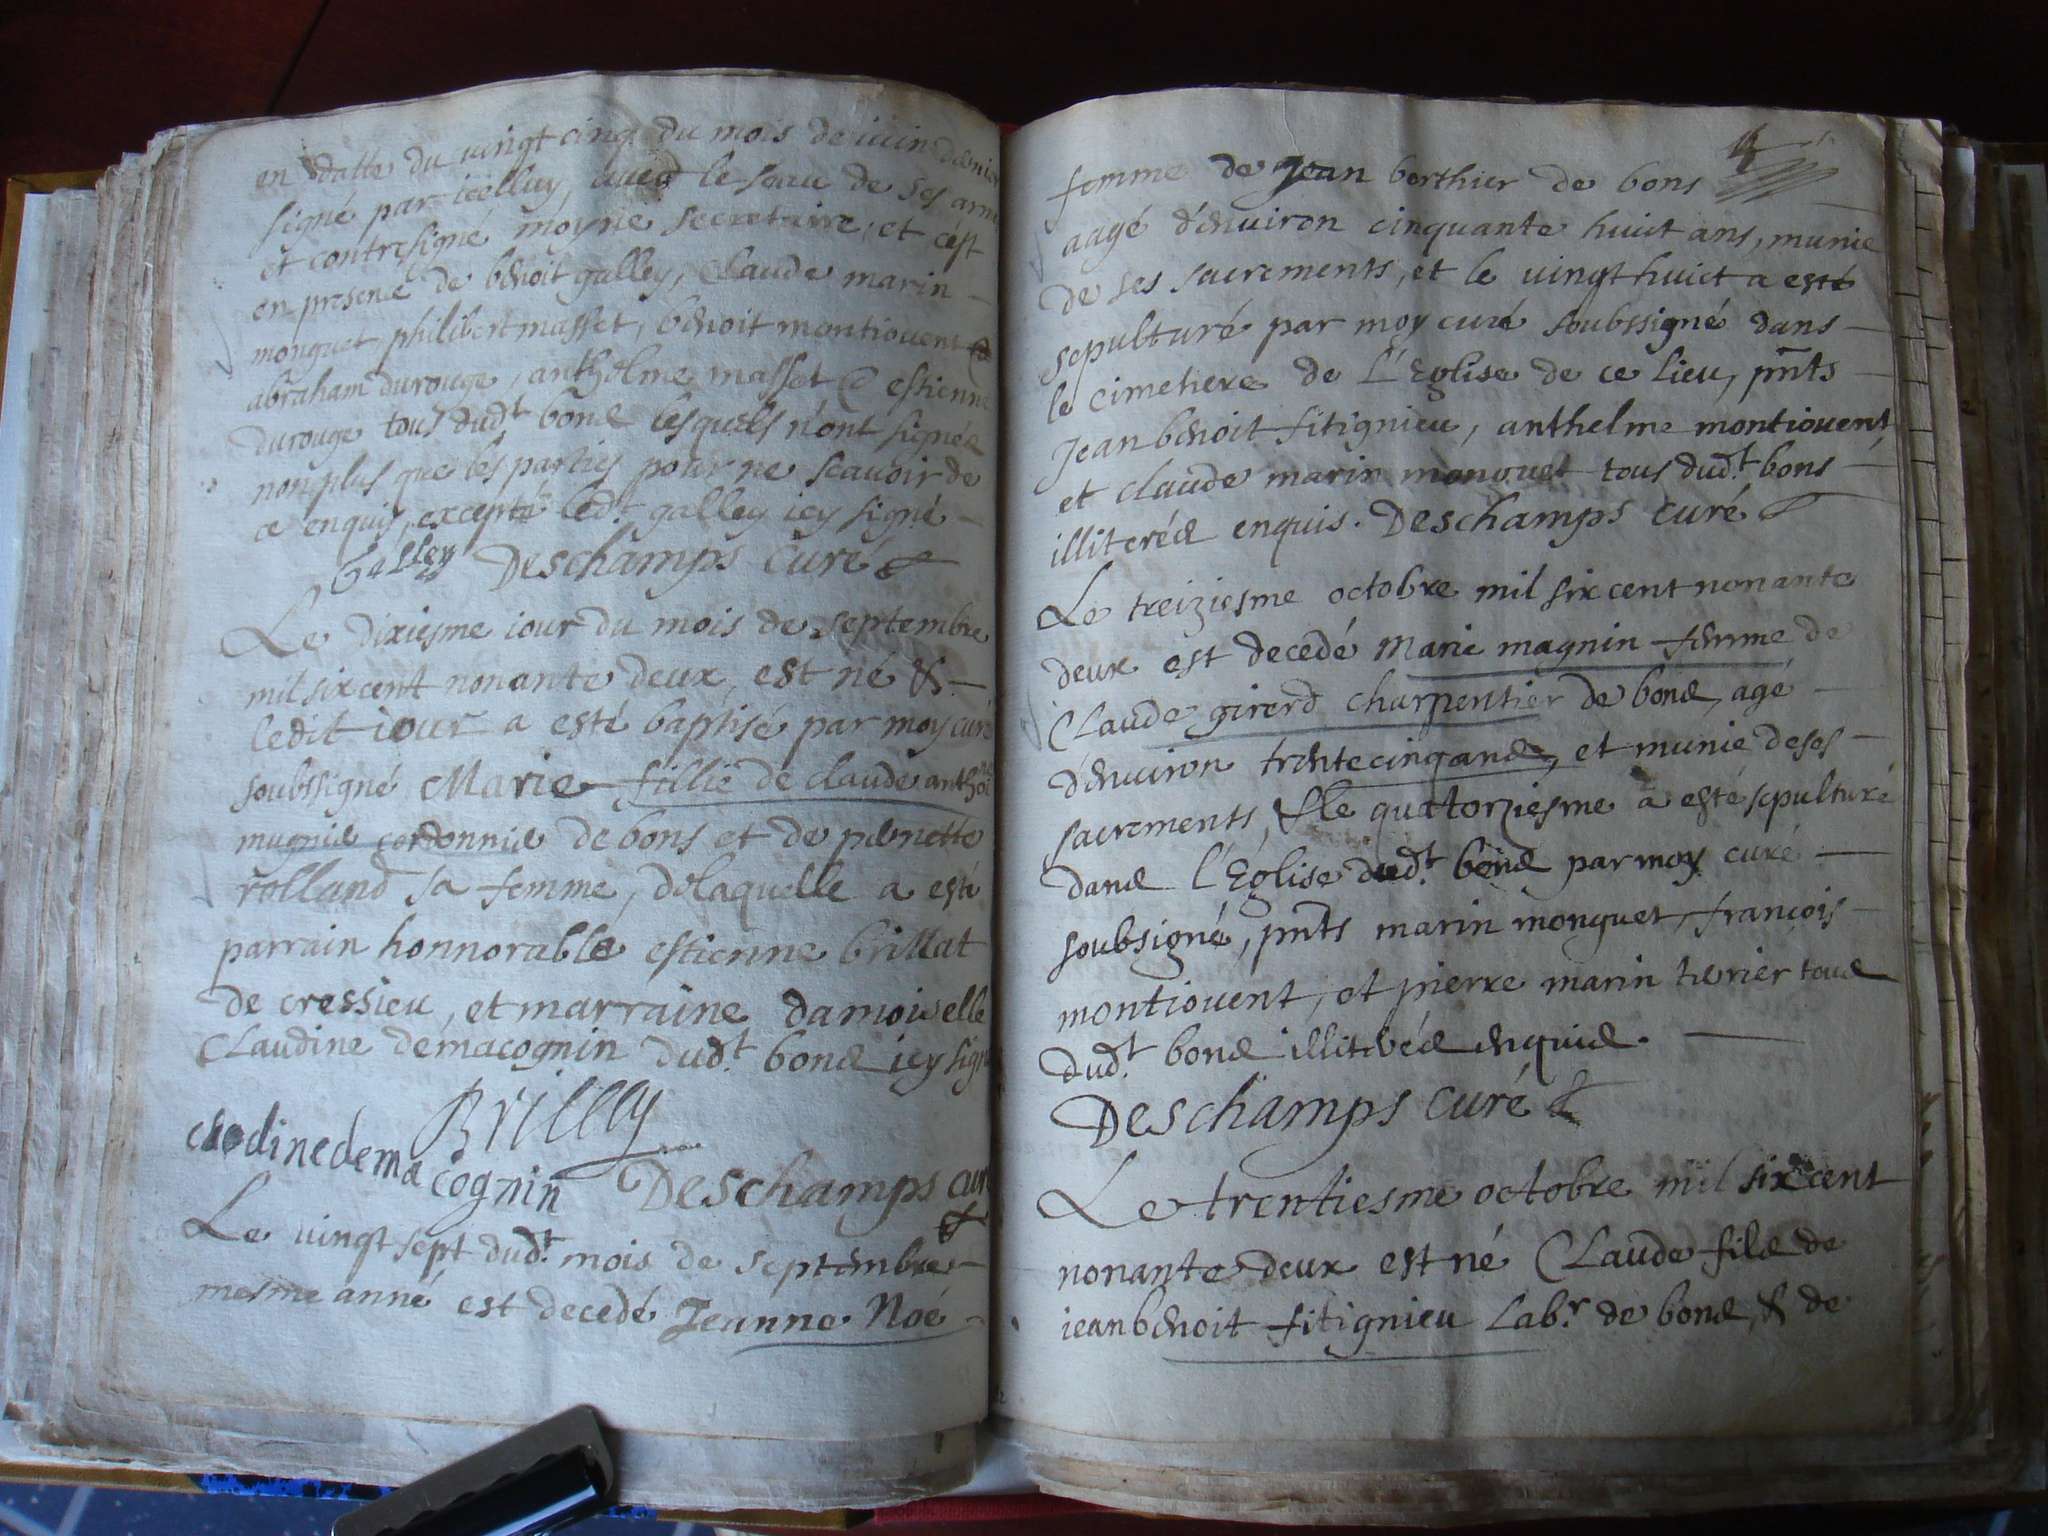 en datte du vingt cinq du mois de iuin dernier
signé par icelluy, avec le seau de ses arm
et contresigné moyne secretaire, et c'est
en presence de benoit galley, Claude marin
monguet, philibert masset, benoit montiouent &
abraham durouge, anthelme masset & estienne
durouge tous dud.t bons lesquels n'ont signés
non plus que les parties pour ne scauoir de
ce enquis, excepté led.t galley icy signé
Galley Deschamps Curé
Le dixiesme iour du mois de septembre
mil six cent nonante deux, est né &
ledit iour a esté baptisé par moy curé
soubssigné Marie fillie de claude anthoi
magnin cordonnie de bons et de pernette
rolland sa femme, de laquelle a esté
parrain honnorable estienne brillat
de cressieu, et marraine damoiselle
Claudine demacognin dud.t bons icy sign
Brillay
clodine dema cognin Deschamps cur
Le vingt sept dud.t mois de septembre
mesme anné est decedé Jeanne Noé
femme de Jean berthier de bons
aagé d'enuiron cinquante huict ans, munie
de ses sacrements, et le vingt huict a esté
sepulturé par moy curé soubssigné dans
le cimetiere de l'Eglise de ce lieu, pnts
Jean benoit fitignieu, anthelme montiouent,
et claude marin monguet tous dud.t bons
illiterés enquis. Deschamps Curé
Le treiziesme octobre mil six cent nonante
deux est decedé Marie magnin femme de
Claude girerd charpentier de bons, agé
d'enuiron trente cinq ans, et munie de ses
sacrements, & le quatorziesme a esté sepulturé
dans l'Eglise dud.t bons par moy curé
soubsigné, pnts marin monguet, françois
montiouent, et pierre marin tierier tous
dud.t bons illiterés enquis.
Deschamps Curé
Le trentiesme octobre mil six cent
nonante deux est né Claude fils de
iean benoit fitignieu Lab.r de bons, & de